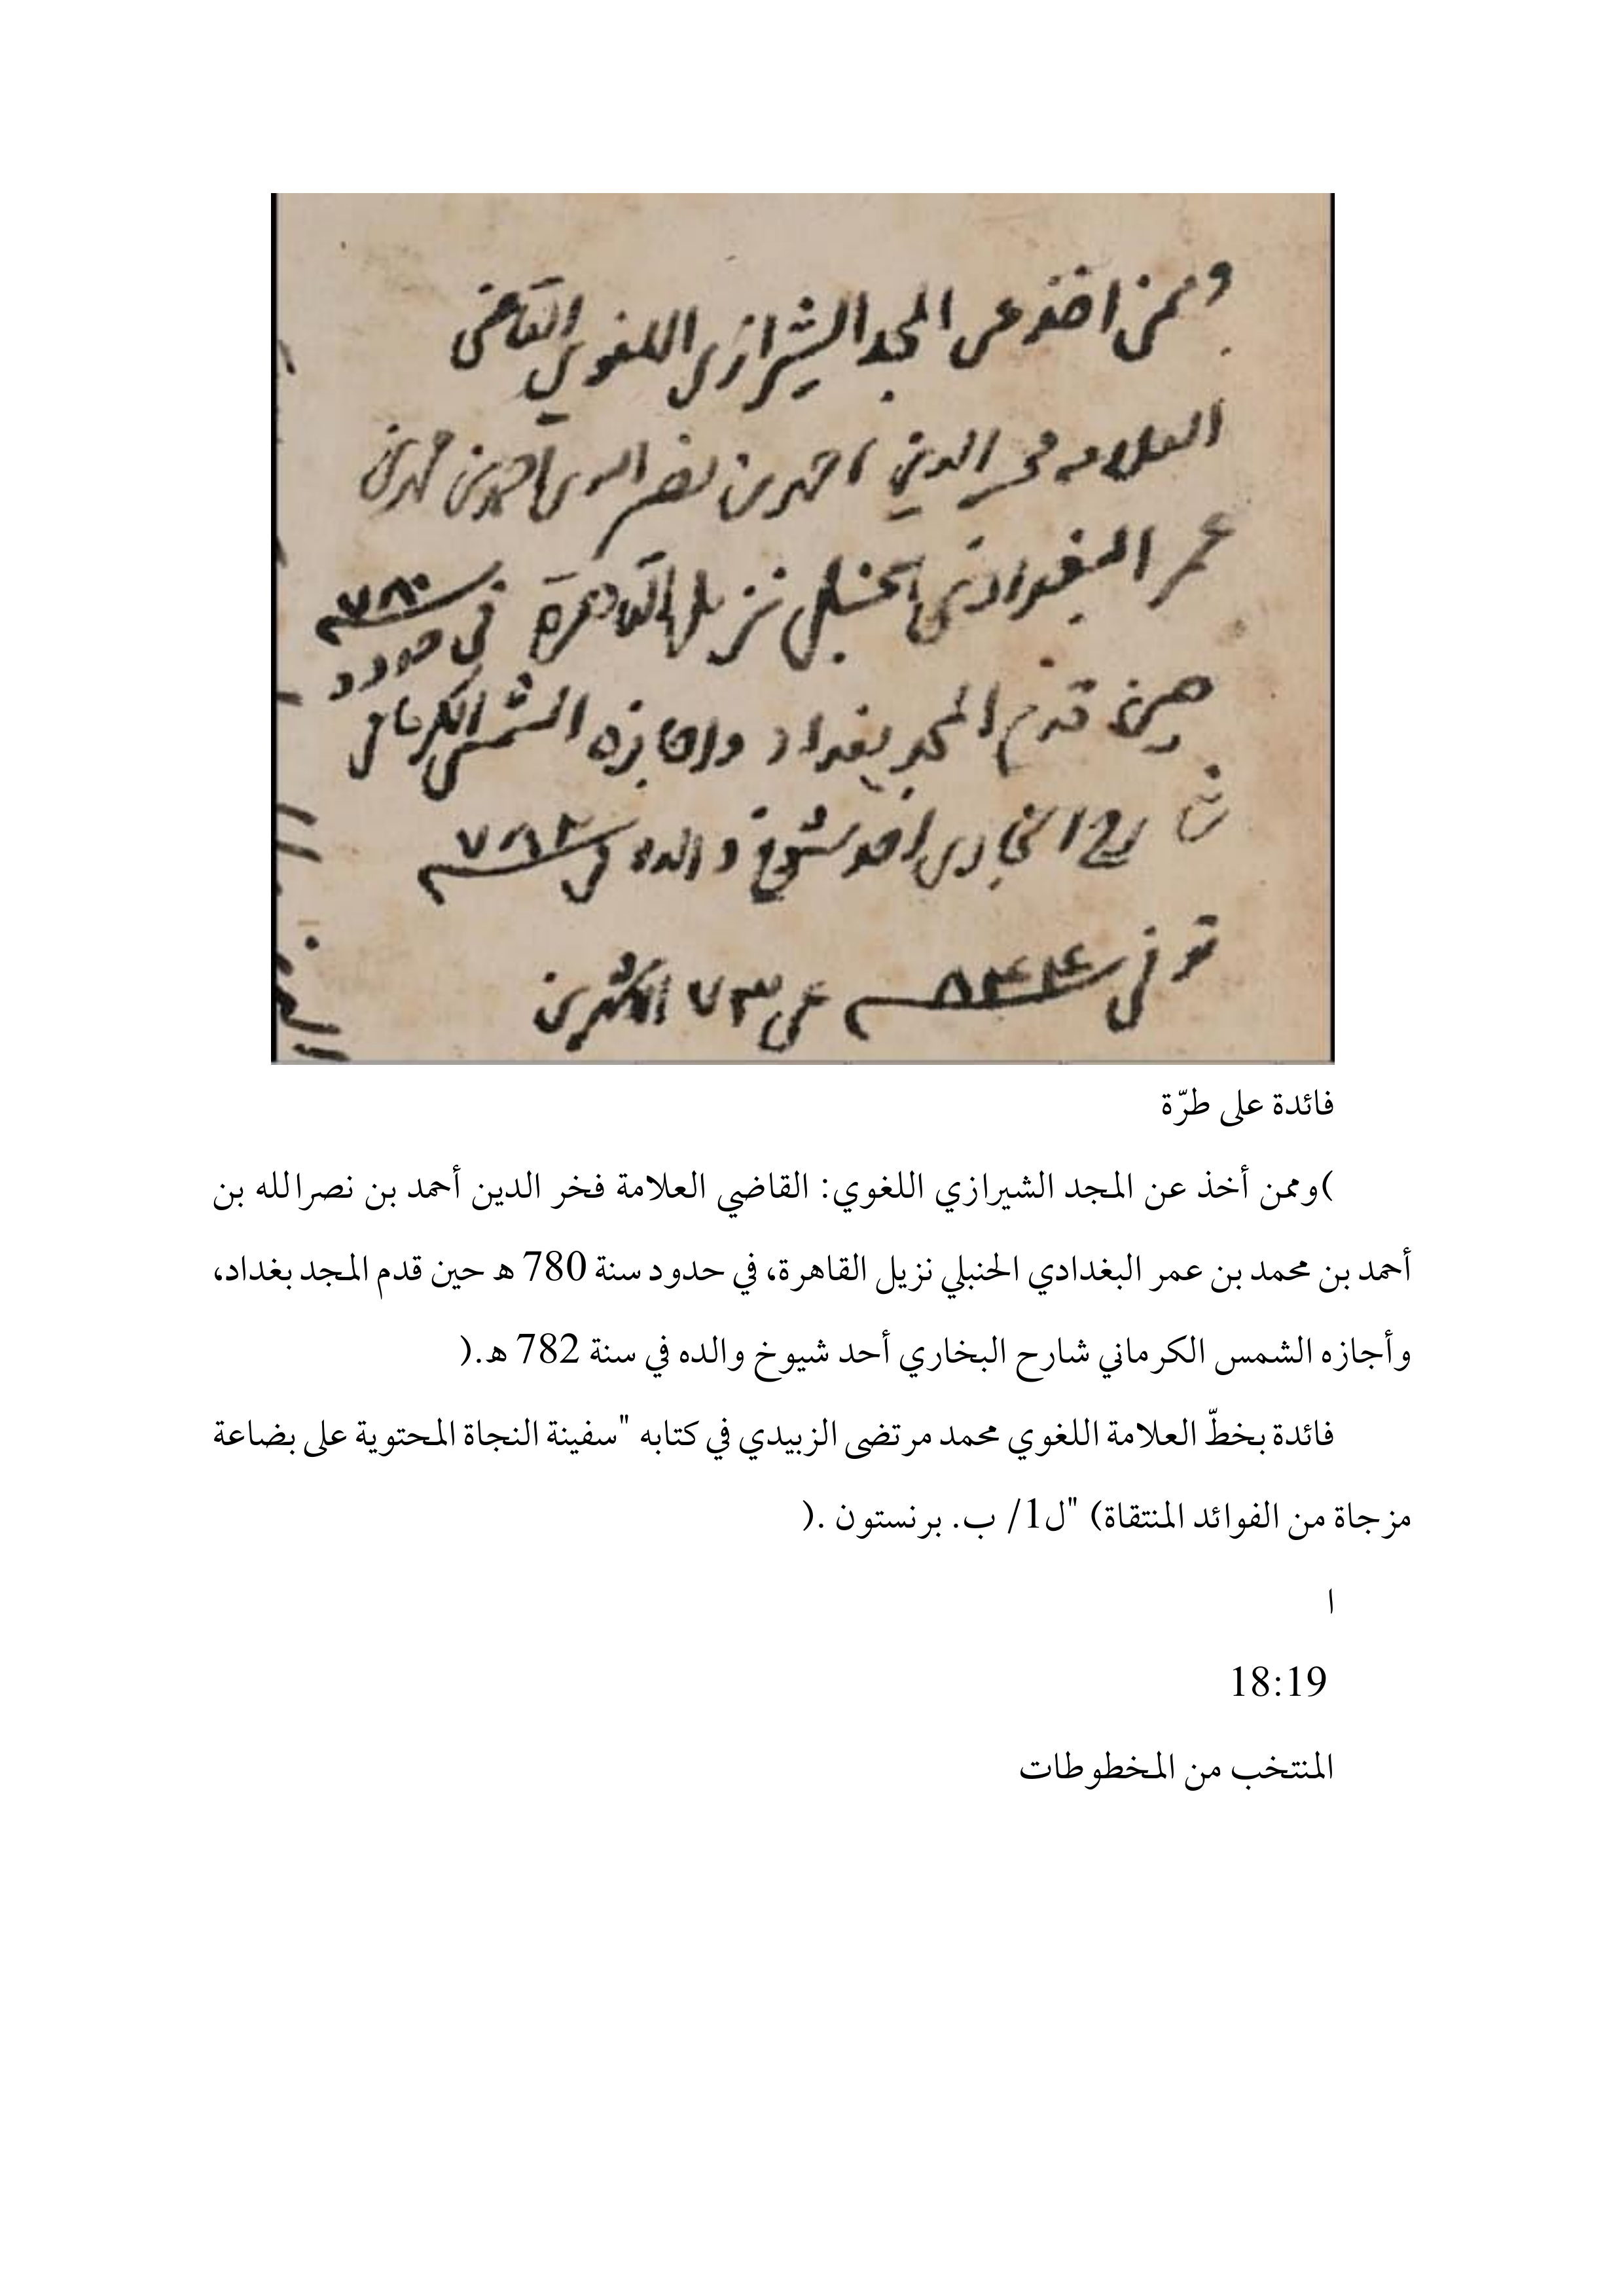 وممن اخذ عن المجد الشيرازي اللغوي القاضي
العلامه فخر الدين احمد بن نصر الله بن احمد بن محمد بن
عمر البغدادي الحنبلي نزيل القاهرة في حدود سنة ٧٨٠
حين قدم المجد بغداد واجازه الشمس الكرماني
شارح البخاري احد شيوخ والده في سنة ٧٨٢
توفي سنة ٨٤٤ عن ٧٣
فائدة على طرّة
)وممن أخذ عن المجد الشيرازي اللغوي: القاضي العلامة فخر الدين أحمد بن نصرالله بن
أحمد بن محمد بن عمر البغدادي الحنبلي نزيل القاهرة، في حدود سنة 780 ه حين قدم المجد بغداد،
وأجازه الشمس الكرماني شارح البخاري أحد شيوخ والده في سنة 782 ه.(
فائدة بخطّ العلامة اللغوي محمد مرتضى الزبيدي في كتابه "سفينة النجاة المحتوية على بضاعة
مزجاة من الفوائد المنتقاة) "ل1/ ب. برنستون .(
ا
18:19
المنتخب من المخطوطات